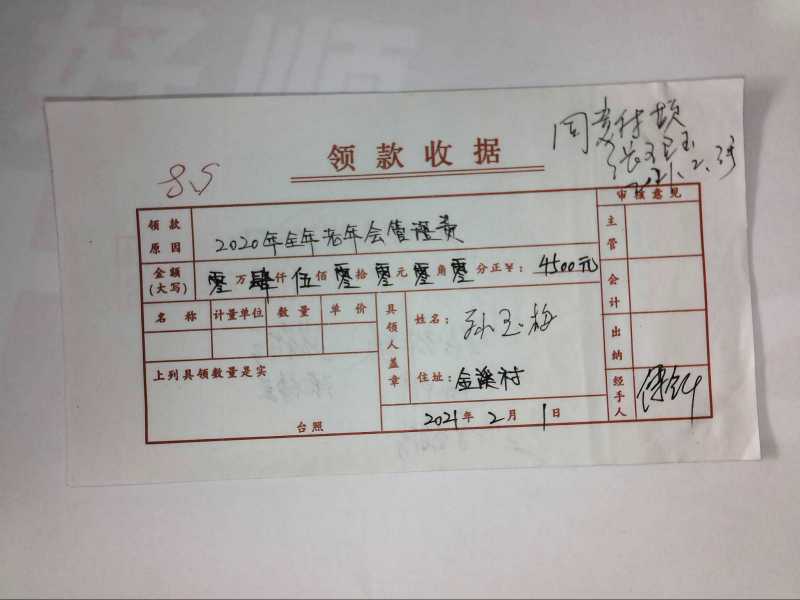 领款收据
8.5
同意付
2021.2.
审核意见
领款原因
2020年全年老年会管理费
金额(大写) 零万肆仟伍佰零拾零元零角零分正¥:4500元
名称 计量单位 数量 单价
具领人盖章
姓名:孙玉梅
住址:金溪村
上列具领数量是实
台照
2021年2月1日
主管
会计
出纳
经手人